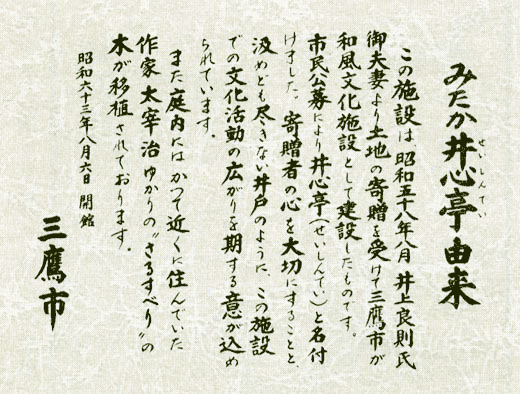 みたか井心亭由来
せいしんてい
この施設は、昭和五十八年八月、井上良則氏
御夫妻より土地の寄贈を受けて三鷹市が
和風文化施設として建設したものです。
市民公募により井心亭(せいしんてい)と名付
けました。寄贈者の心を大切にすることと、
汲めども尽きない井戸のように、この施設
での文化活動の広がりを期する意が込め
られています。
また庭内にはかつて近くに住んでいた
作家 太宰治 ゆかりの〝さるすべり〟の
木が移植されております。
昭和六十三年八月六日 開館
三鷹市